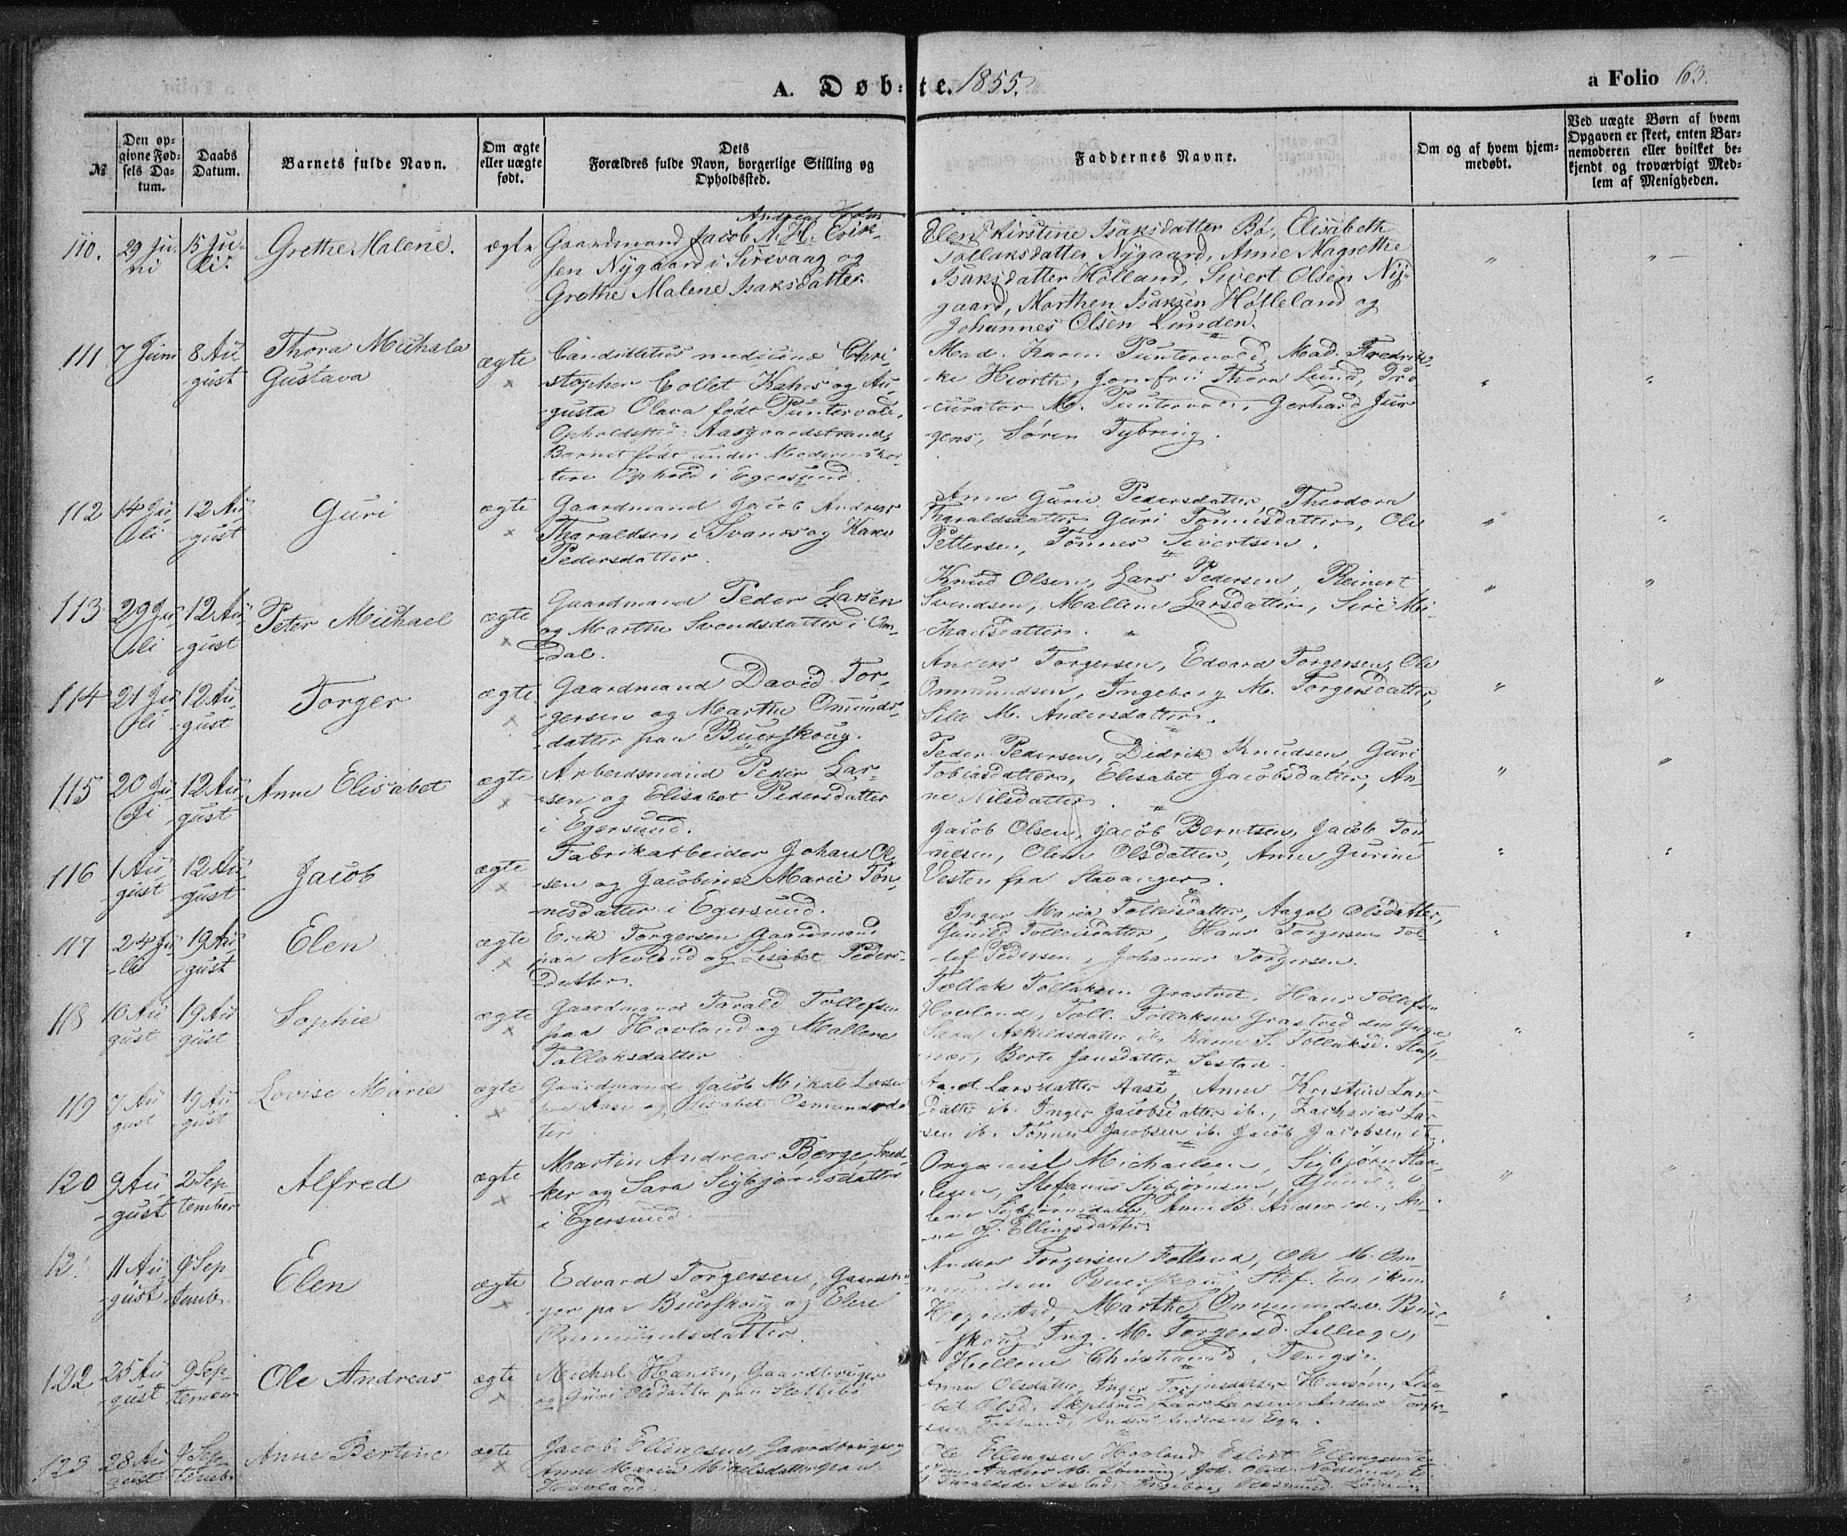 A. Døb-te. 1855.
a Folio 63.
№
Den op-
givne Fød-
sels Da-
tum.
Daabs
Datum.
Barnets fulde Navn.
Om ægte
eller uægte
født.
Dets
Forældres fulde Navn, borgerlige Stilling og
Opholdssted.
Faddernes Navne.
Om og af hvem hjem-
medøbt.
Ved uægte Børn af hvem
Opgaven er skeet, enten Bar-
nemoderen eller hvilket be-
kjendt og troværdigt Med-
lem af Menigheden.
110. 29 Ju-
ni
15 Ju-
li.
Grethe Malene.
ægte
Andreas Holm
Gaardmand Jacob A. H. Erik-
sen Nygaard i Sirevaag og
Grethe Malene Isaksdatter
Elen Kirstine Isaksdatter Bø, Elisabeth
Tollaksdatter Nygaard, Anne Magrethe
Isaksdatter Holland, Sivert Olsen Ny-
gaard, Marthen Isaksen Hølleland og
Johannes Olsen Lunden.
111 7 Juni
8 Au
gust
Thora Michala
Gustava
ægte
Candidatus medicinæ Chri-
stopher Collet Kahrs og Au-
gusta Olava født Puntervold,
Opholdsted: Aasgaardstrand,
Barnet født under Moderens kor-
tere Ophold i Egersund.
Mad. Karen Puntervold, Mad. Fredrik-
ke Hiorth, Jomfru Thora Lund, Pro
curator M. Puntervold, Gerhard Jur
gens, Søren Tybring.
112 14 Ju-
li
12 Au
gust
Guri
ægte
Gaardmand Jacob Andreas
Tharaldsen i Svanes og Karen
Pedersdatter.
Anne Gurie Pedersdatter, Theodora
Tharaldsdatter Guri Tønnisdatter, Ole
Pettersen, Tønnes Sivertsen.
113 29 Ju-
li
12 Au
gust
Peter Michael
ægte
Gaardmand Peder Larsen
og Marthe Svendsdatter i Om-
dal.
Knud Olsen, Lars Pedersen, Reinert
Svendsen, Mallene Larsdatter, Siri Mi-
chalsdatter.
114 21 Ju-
li
12 Au
gust
Torger
ægte
Gaardmand David Tor-
gersen og Marthe Omunds-
datter paa Buerskoug.
Anders Torgersen, Edvard Torgersen, Ole
Ommundsen, Ingeborg M. Torgersdatter,
Sille M. Andersdatter.
115 20 Ju-
li
12 Au
gust
Anne Elisabet
ægte
Arbeidsmand Peder Lar-
sen og Elisabet Pedersdatter
i Egersund.
Peder Pedersen, Didrik Knudsen, Guri
Tobiasdatter, Elisabet Jacobsdatter, An-
ne Nilsdatter.
116 1 Au-
gust
12 Au
gust
Jacob
ægte
Fabrikarbeider Johan Ol-
sen og Jacobine Marie Tøn-
nesdatter i Egersund.
Jacob Olsen, Jacob Berntsen, Jacob Tøn-
nesen, Olene Olsdatter, Anne Gurine
Vesten fra Stavanger.
117 24 Ju-
li
19 Au
gust
Elen
ægte
Erik Torgersen Gaardmand
paa Nevland og Lisabet Peders-
datter.
Inger Maria Tolleisdatter, Aagot Olsdatter,
Gunild Tolleisdatter, Hans Torgersen Tol-
lef Pedersen, Johannes Torgersen.
118 10 Au
gust
19 Au
gust
Sophie
ægte
Gaardmand Tarald Tollefsen
paa Hovland og Mallene
Tollaksdatter
Tollak Tollaksen Grastveit, Hans Tollefs.
Hovland, Toll. Tollaksen Grastveit den yngre
119 7 Au
gust
19 Au
gust
Lovise Marie
ægte
Gaardmand Jacob Mikal Larsen
paa Aase og Elisabet Osmundsdat
ter
Larsdatter Aase, Anne Kirstine Lars-
datter ib. Inger Jacobsdatter ib., Zacharias Lar-
sen ib. Tønnes Jacobsen ib. Jacob Jacobsen ib.
120 9 Au
gust
2 Sep-
tember
Alfred
ægte
Martin Andreas Børge Sned-
ker og Sara Sigbjørnsdatter
i Egersund.
Organist Michaelsen, Sigbjørn
Stefanus Sigbjørnsen,
Sigbjørnsdatter, Anne B. Andersd., An-
ne G. Ellingsdatter
121 11 Au
gust
9 Sep-
temb.
Elen
ægte
Edvard Torgersen, Gaardbru-
ger paa Buerskoug og Elen
Ommundsdatter.
Anders Torgersen Folland, Ole M. Om-
mundsen Buerskoug,
Marthe Ommundsd. Buer-
skoug Ing. M. Torgersd.
Hellene Christiansd. Tengs.
122 25 Au
gust
9 Sep-
tember
Ole Andreas
ægte
Michal Hansen, Gaardbruger
og Guri Olsdatter paa Sletthebø
Anne Olsdatter, Inger
Lars Larsen
123 28 Au
gust
9 Sep-
temb.
Anne Bertine
ægte
Jacob Ellingsen, Gaardbruger og
Anne Maria Mikelsdatter paa
Hovland.
Ole Ellingsen Hovland, Eilert Ellingsen